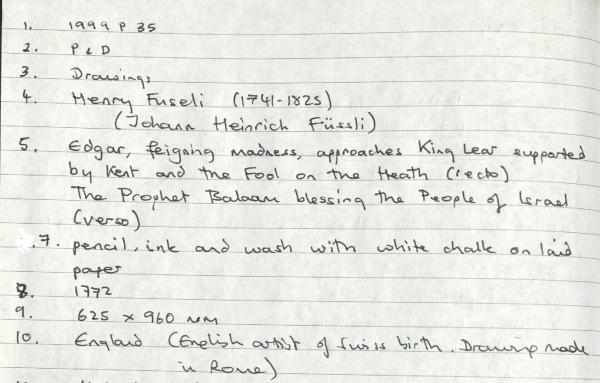 1. 1999 P 35
2. P & D
3. Drawings
4. Henry Fuseli (1741-1825)
(Johann Heinrich Füssli)
5. Edgar, feigning madness, approaches King Lear supported
by Kent and the Fool on the Heath (recto)
The Prophet Balaam blessing the People of Israel
(verso)
7. pencil, ink and wash with white chalk on laid
paper
8. 1772
9. 625 x 960 mm
10. England (English artist of Swiss birth. Drawing made
in Rome)